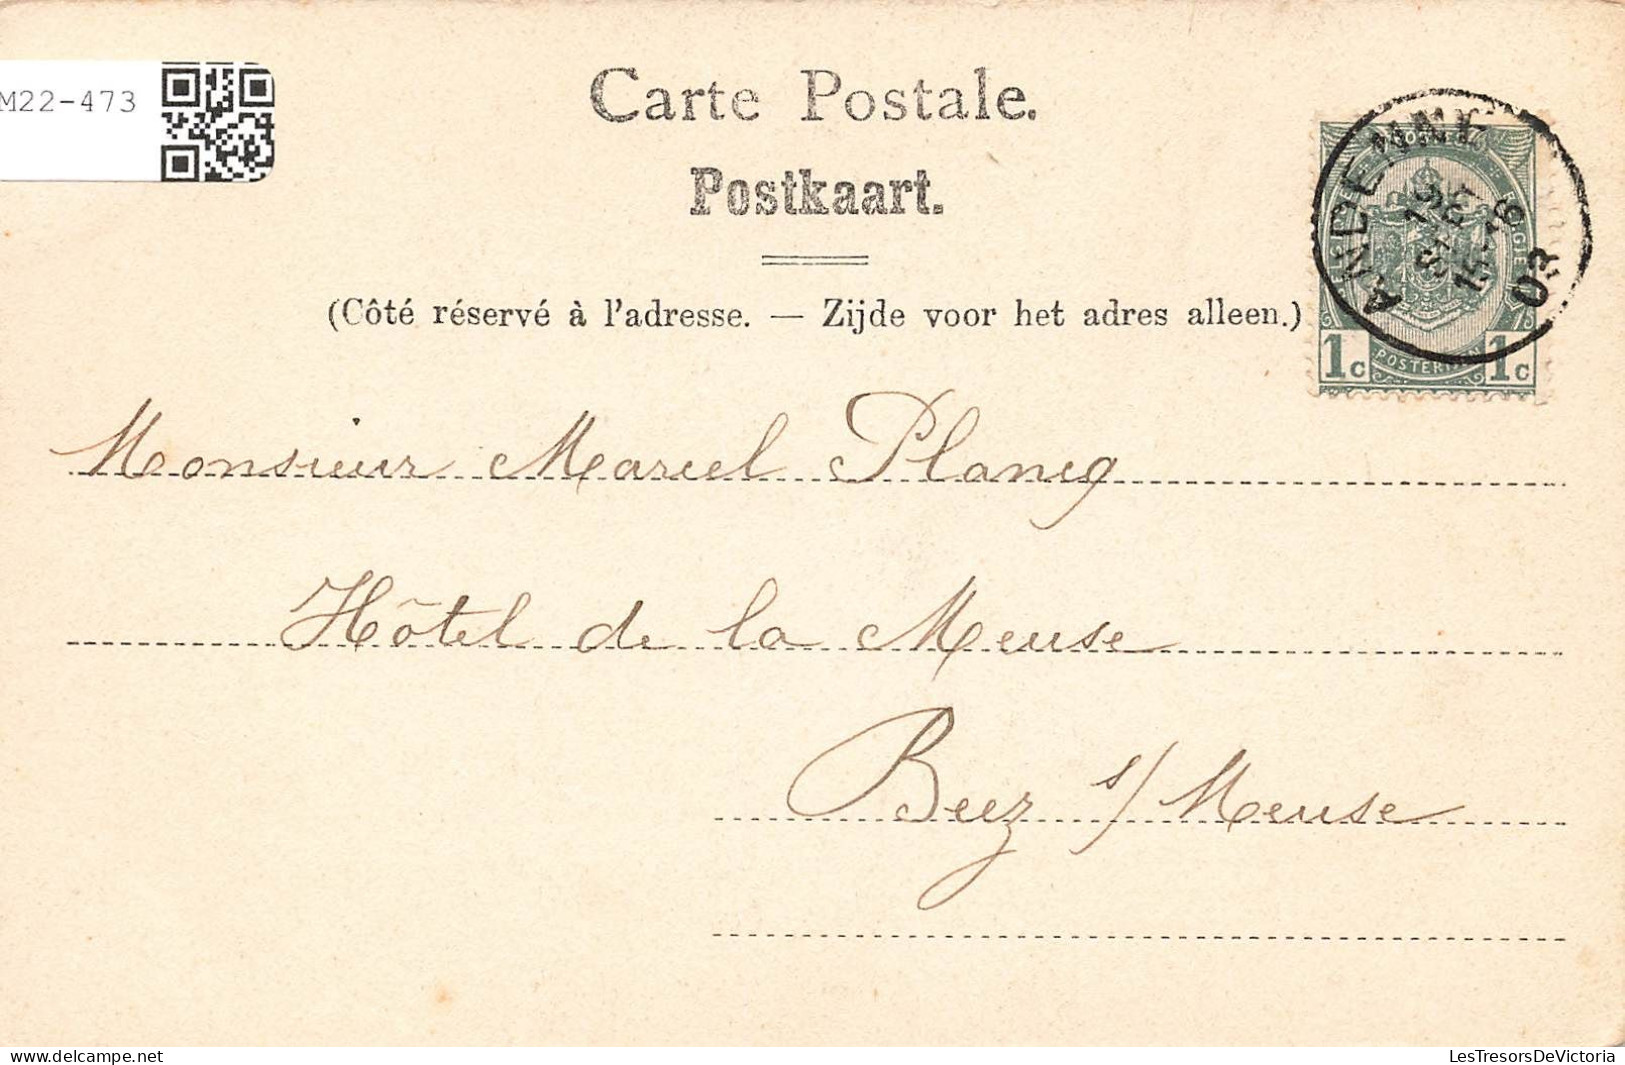 M22-473
Carte Postale.
Postkaart.
(Côté réservé à l'adresse. — Zijde voor het adres alleen.)
ANDENNE
19
SEPT
15-16
03
1c POSTERIJEN 1c
Monsieur Marcel Plancq
Hôtel de la Meuse
Beez s/ Meuse
M22-473.jpeg
LesTresorsDeVictoria